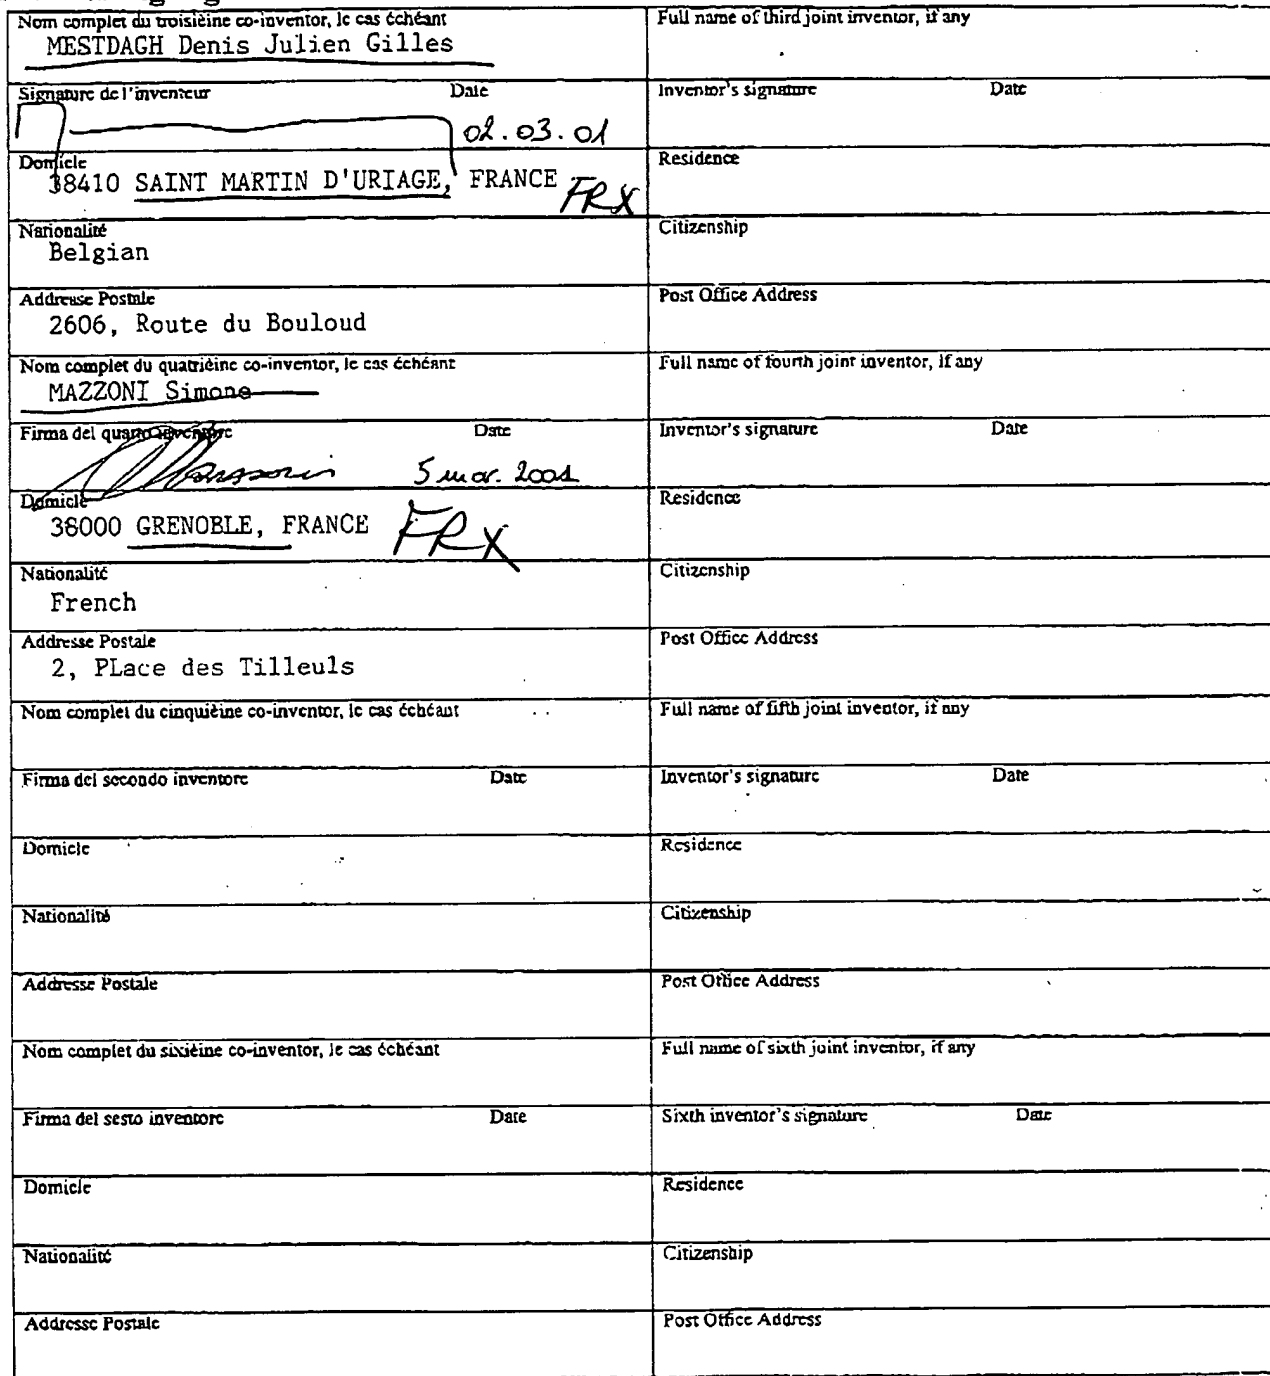 Nom complet du troisièine co-inventor, le cas échéant
MESTDAGH Denis Julien Gilles
Full name of third joint inventor, if any
Signature de l'inventeur Date
02.03.01
Inventor's signature Date
Domicle
38410 SAINT MARTIN D'URIAGE, FRANCE FRX
Residence
Nationalité
Belgian
Citizenship
Addresse Postale
2606, Route du Bouloud
Post Office Address
Nom complet du quatrièine co-inventor, le cas échéant
MAZZONI Simone
Full name of fourth joint inventor, if any
Firma del quarto inventore Date
5 mar. 2001
Inventor's signature Date
Domicle
38000 GRENOBLE, FRANCE FRX
Residence
Nationalité
French
Citizenship
Addresse Postale
2, PLace des Tilleuls
Post Office Address
Nom complet du cinquièine co-inventor, le cas échéant
Full name of fifth joint inventor, if any
Firma del secondo inventore Date
Inventor's signature Date
Domicle
Residence
Nationalité
Citizenship
Addresse Postale
Post Office Address
Nom complet du sixièine co-inventor, le cas échéant
Full name of sixth joint inventor, if any
Firma del sesto inventore Date
Sixth inventor's signature Date
Domicle
Residence
Nationalité
Citizenship
Addresse Postale
Post Office Address